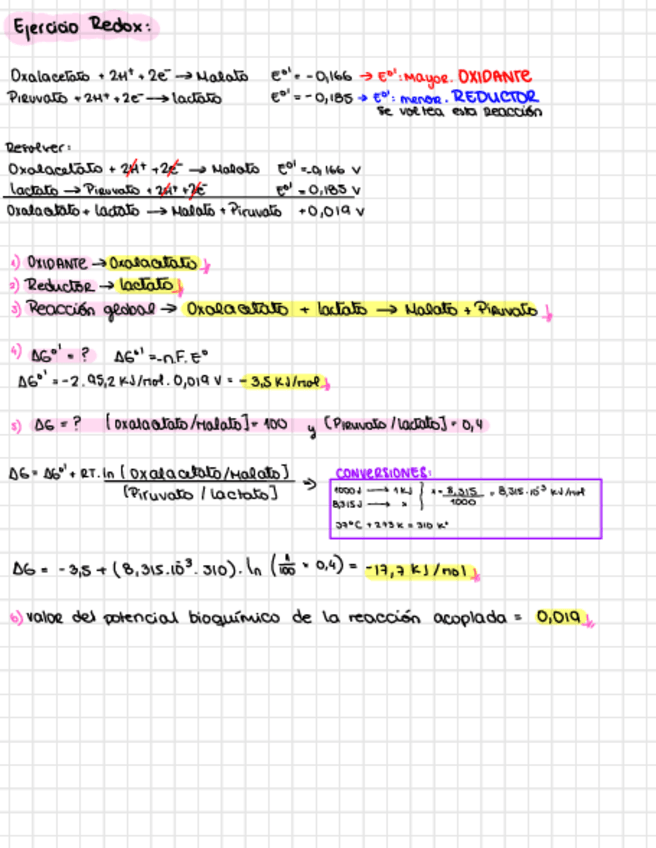 Ejercicio Redox:
Oxalacetato + 2H⁺ + 2e⁻ → Malato E⁰' = -0,166 → E⁰': Mayor. OXIDANTE
Piruvato + 2H⁺ + 2e⁻ → lactato E⁰' = -0,185 → E⁰': menor. REDUCTOR
se voltea esta reacción
Resolver:
Oxalacetato + 2H⁺ + 2e⁻ → Malato E⁰' = -0,166 V
lactato → Piruvato + 2H⁺ + 2e⁻ E⁰' = 0,185 V
Oxalacetato + lactato → Malato + Piruvato +0,019 V
1) OXIDANTE → Oxalacetato
2) Reductor → lactato
3) Reacción global → Oxalacetato + lactato → Malato + Piruvato
4) ΔG⁰' = ? ΔG⁰' = -n.F.E⁰
ΔG⁰' = -2.95,2 KJ/mol. 0,019 V = -3,5 KJ/mol
5) ΔG = ? [oxalacetato/Malato] = 100 y [Piruvato/lactato] = 0,4
ΔG = ΔG⁰' + RT.ln [Oxalacetato/Malato] →
[Piruvato / Lactato]
CONVERSIONES:
1000J → 1KJ
8,315J → x
x = 8,315 / 1000 = 8,315.10⁻³ KJ/mol
37°C + 273K = 310 K°
ΔG = -3,5 + (8,315.10⁻³. 310). ln (1/100 · 0,4) = -17,7 KJ/mol
6) valor del potencial bioquímico de la reacción acoplada = 0,019